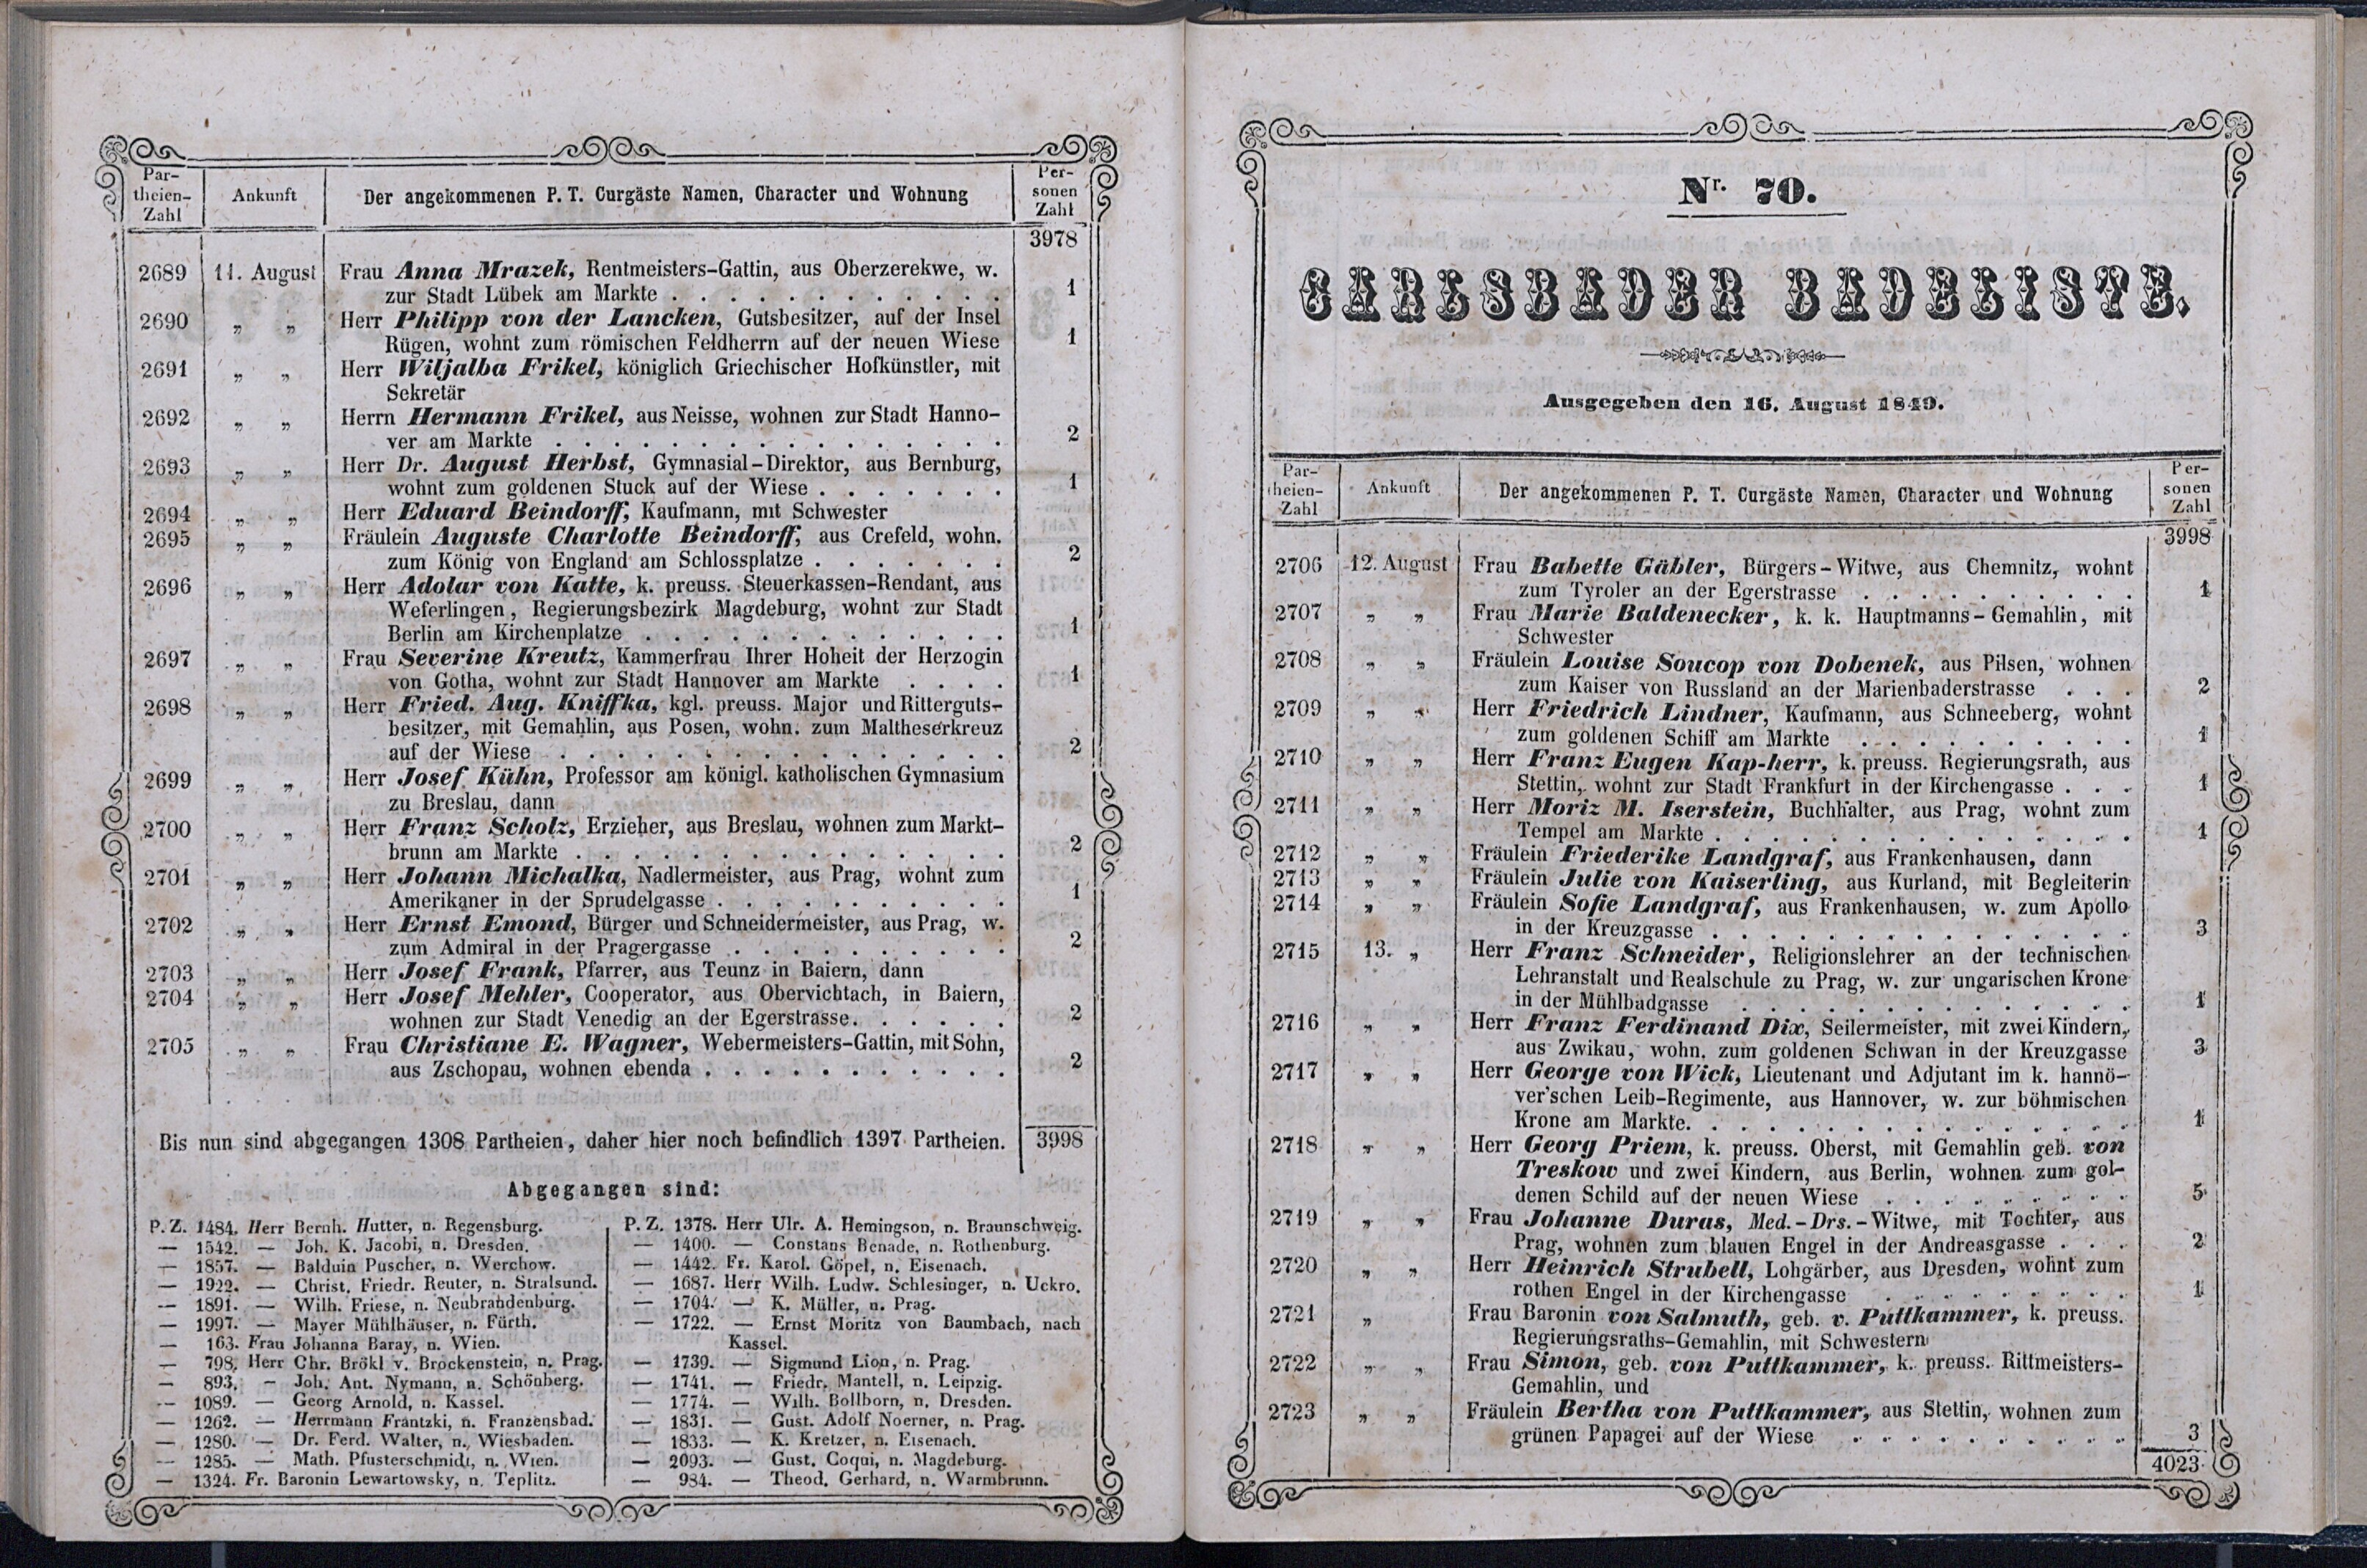 Par-
theien-
Zahl
Ankunft
Der angekommenen P. T. Curgäste Namen, Character und Wohnung
Per-
sonen
Zahl
3978
2689 11. August Frau Anna Mrazek, Rentmeisters-Gattin, aus Oberzerekwe, w.
zur Stadt Lübek am Markte . . . . . . . . . . . . 1
2690 „ „ Herr Philipp von der Lancken, Gutsbesitzer, auf der Insel
Rügen, wohnt zum römischen Feldherrn auf der neuen Wiese 1
2691 „ „ Herr Wiljalba Frikel, königlich Griechischer Hofkünstler, mit
Sekretär
2692 „ „ Herrn Hermann Frikel, aus Neisse, wohnen zur Stadt Hanno-
ver am Markte . . . . . . . . . . . . . . . . 2
2693 „ „ Herr Dr. August Herbst, Gymnasial-Direktor, aus Bernburg,
wohnt zum goldenen Stuck auf der Wiese . . . . . . . 1
2694 „ „ Herr Eduard Beindorff, Kaufmann, mit Schwester
2695 „ „ Fräulein Auguste Charlotte Beindorff, aus Crefeld, wohn.
zum König von England am Schlossplatze . . . . . . . 2
2696 „ „ Herr Adolar von Katte, k. preuss. Steuerkassen-Rendant, aus
Weferlingen, Regierungsbezirk Magdeburg, wohnt zur Stadt
Berlin am Kirchenplatze . . . . . . . . . . . . . 1
2697 „ „ Frau Severine Kreutz, Kammerfrau Ihrer Hoheit der Herzogin
von Gotha, wohnt zur Stadt Hannover am Markte . . . . 1
2698 „ „ Herr Fried. Aug. Kniffka, kgl. preuss. Major und Ritterguts-
besitzer, mit Gemahlin, aus Posen, wohn. zum Maltheserkreuz
auf der Wiese . . . . . . . . . . . . . . . . 2
2699 „ „ Herr Josef Kühn, Professor am königl. katholischen Gymnasium
zu Breslau, dann
2700 „ „ Herr Franz Scholz, Erzieher, aus Breslau, wohnen zum Markt-
brunn am Markte . . . . . . . . . . . . . . . 2
2701 „ „ Herr Johann Michalka, Nadlermeister, aus Prag, wohnt zum
Amerikaner in der Sprudelgasse . . . . . . . . . . 1
2702 „ „ Herr Ernst Emond, Bürger und Schneidermeister, aus Prag, w.
zum Admiral in der Pragergasse . . . . . . . . . . 2
2703 „ „ Herr Josef Frank, Pfarrer, aus Teunz in Baiern, dann
2704 „ „ Herr Josef Mehler, Cooperator, aus Obervichtach, in Baiern,
wohnen zur Stadt Venedig an der Egerstrasse. . . . . . 2
2705 „ „ Frau Christiane E. Wagner, Webermeisters-Gattin, mit Sohn,
aus Zschopau, wohnen ebenda . . . . . . . . . . . 2
Bis nun sind abgegangen 1308 Partheien, daher hier noch befindlich 1397 Partheien. 3998
Abgegangen sind:
P. Z. 1484. Herr Bernh. Hutter, n. Regensburg.
— 1542. — Joh. K. Jacobi, n. Dresden.
— 1857. — Balduin Puscher, n. Werchow.
— 1922. — Christ. Friedr. Reuter, n. Stralsund.
— 1891. — Wilh. Friese, n. Neubrandenburg.
— 1997. — Mayer Mühlhäuser, n. Fürth.
— 163. Frau Johanna Baray, n. Wien.
— 798. Herr Chr. Brökl v. Brockenstein, n. Prag.
— 893. — Joh. Ant. Nymann, n. Schönberg.
— 1089. — Georg Arnold, n. Kassel.
— 1262. — Herrmann Frantzki, n. Franzensbad.
— 1280. — Dr. Ferd. Walter, n. Wiesbaden.
— 1285. — Math. Pfusterschmidt, n. Wien.
— 1324. Fr. Baronin Lewartowsky, n. Teplitz.
P. Z. 1378. Herr Ulr. A. Hemingson, n. Braunschweig.
— 1400. — Constans Benade, n. Rothenburg.
— 1442. Fr. Karol. Göpel, n. Eisenach.
— 1687. Herr Wilh. Ludw. Schlesinger, n. Uckro.
— 1704. — K. Müller, n. Prag.
— 1722. — Ernst Moritz von Baumbach, nach
Kassel.
— 1739. — Sigmund Lion, n. Prag.
— 1741. — Friedr. Mantell, n. Leipzig.
— 1774. — Wilh. Bollborn, n. Dresden.
— 1831. — Gust. Adolf Noerner, n. Prag.
— 1833. — K. Kretzer, n. Eisenach.
— 2093. — Gust. Coqui, n. Magdeburg.
— 984. — Theod. Gerhard, n. Warmbrunn.
Nr. 70.
CARLSBADER BADELISTE.
Ausgegeben den 16. August 1849.
Par-
theien-
Zahl
Ankunft
Der angekommenen P. T. Curgäste Namen, Character und Wohnung
Per-
sonen
Zahl
3998
2706 12. August Frau Babette Gäbler, Bürgers-Witwe, aus Chemnitz, wohnt
zum Tyroler an der Egerstrasse . . . . . . . . . . 1
2707 „ „ Frau Marie Baldenecker, k. k. Hauptmanns-Gemahlin, mit
Schwester
2708 „ „ Fräulein Louise Soucop von Dobenek, aus Pilsen, wohnen
zum Kaiser von Russland an der Marienbaderstrasse . . . 2
2709 „ „ Herr Friedrich Lindner, Kaufmann, aus Schneeberg, wohnt
zum goldenen Schiff am Markte . . . . . . . . . . 1
2710 „ „ Herr Franz Eugen Kap-herr, k. preuss. Regierungsrath, aus
Stettin, wohnt zur Stadt Frankfurt in der Kirchengasse . . . 1
2711 „ „ Herr Moriz M. Iserstein, Buchhalter, aus Prag, wohnt zum
Tempel am Markte . . . . . . . . . . . . . . . 1
2712 „ „ Fräulein Friederike Landgraf, aus Frankenhausen, dann
2713 „ „ Fräulein Julie von Kaiserling, aus Kurland, mit Begleiterin
2714 „ „ Fräulein Sofie Landgraf, aus Frankenhausen, w. zum Apollo
in der Kreuzgasse . . . . . . . . . . . . . . . 3
2715 13. „ Herr Franz Schneider, Religionslehrer an der technischen
Lehranstalt und Realschule zu Prag, w. zur ungarischen Krone
in der Mühlbadgasse . . . . . . . . . . . . . . 1
2716 „ „ Herr Franz Ferdinand Dix, Seilermeister, mit zwei Kindern,
aus Zwikau, wohn. zum goldenen Schwan in der Kreuzgasse 3
2717 „ „ Herr George von Wick, Lieutenant und Adjutant im k. hannö-
ver'schen Leib-Regimente, aus Hannover, w. zur böhmischen
Krone am Markte. . . . . . . . . . . . . . . . 1
2718 „ „ Herr Georg Priem, k. preuss. Oberst, mit Gemahlin geb. von
Treskow und zwei Kindern, aus Berlin, wohnen zum gol-
denen Schild auf der neuen Wiese . . . . . . . . . 5
2719 „ „ Frau Johanne Duras, Med.-Drs.-Witwe, mit Tochter, aus
Prag, wohnen zum blauen Engel in der Andreasgasse . . . 2
2720 „ „ Herr Heinrich Strubell, Lohgärber, aus Dresden, wohnt zum
rothen Engel in der Kirchengasse . . . . . . . . . 1
2721 „ Frau Baronin von Salmuth, geb. v. Puttkammer, k. preuss.
Regierungsraths-Gemahlin, mit Schwestern
2722 „ „ Frau Simon, geb. von Puttkammer, k. preuss. Rittmeisters-
Gemahlin, und
2723 „ „ Fräulein Bertha von Puttkammer, aus Stettin, wohnen zum
grünen Papagei auf der Wiese . . . . . . . . . . 3
4023